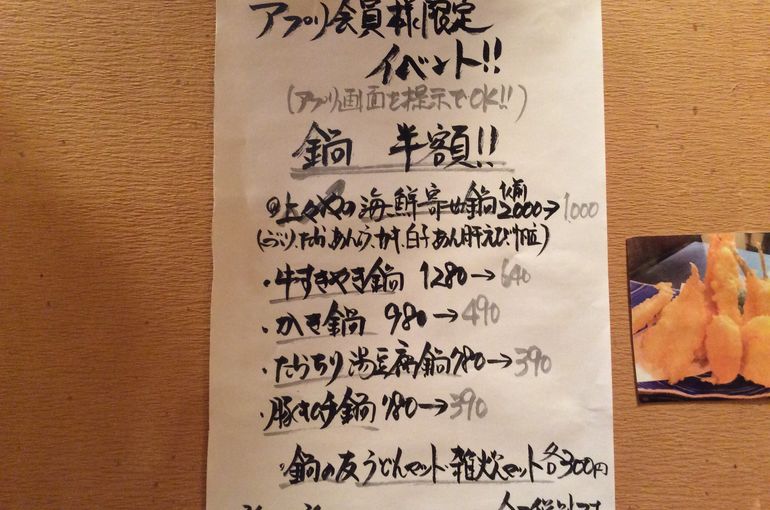 アプリ会員様限定
イベント!!
(アプリ画面を提示でOK!!)
鍋 半額!!
海鮮寄せ鍋 1人前 2000→1,000
・牛すきやき鍋 1280→640
・かき鍋 980→490
・たらちり湯豆腐鍋 780→390
・豚キムチ鍋 780→390
鍋の友 うどんセット・雑炊セット 各300円